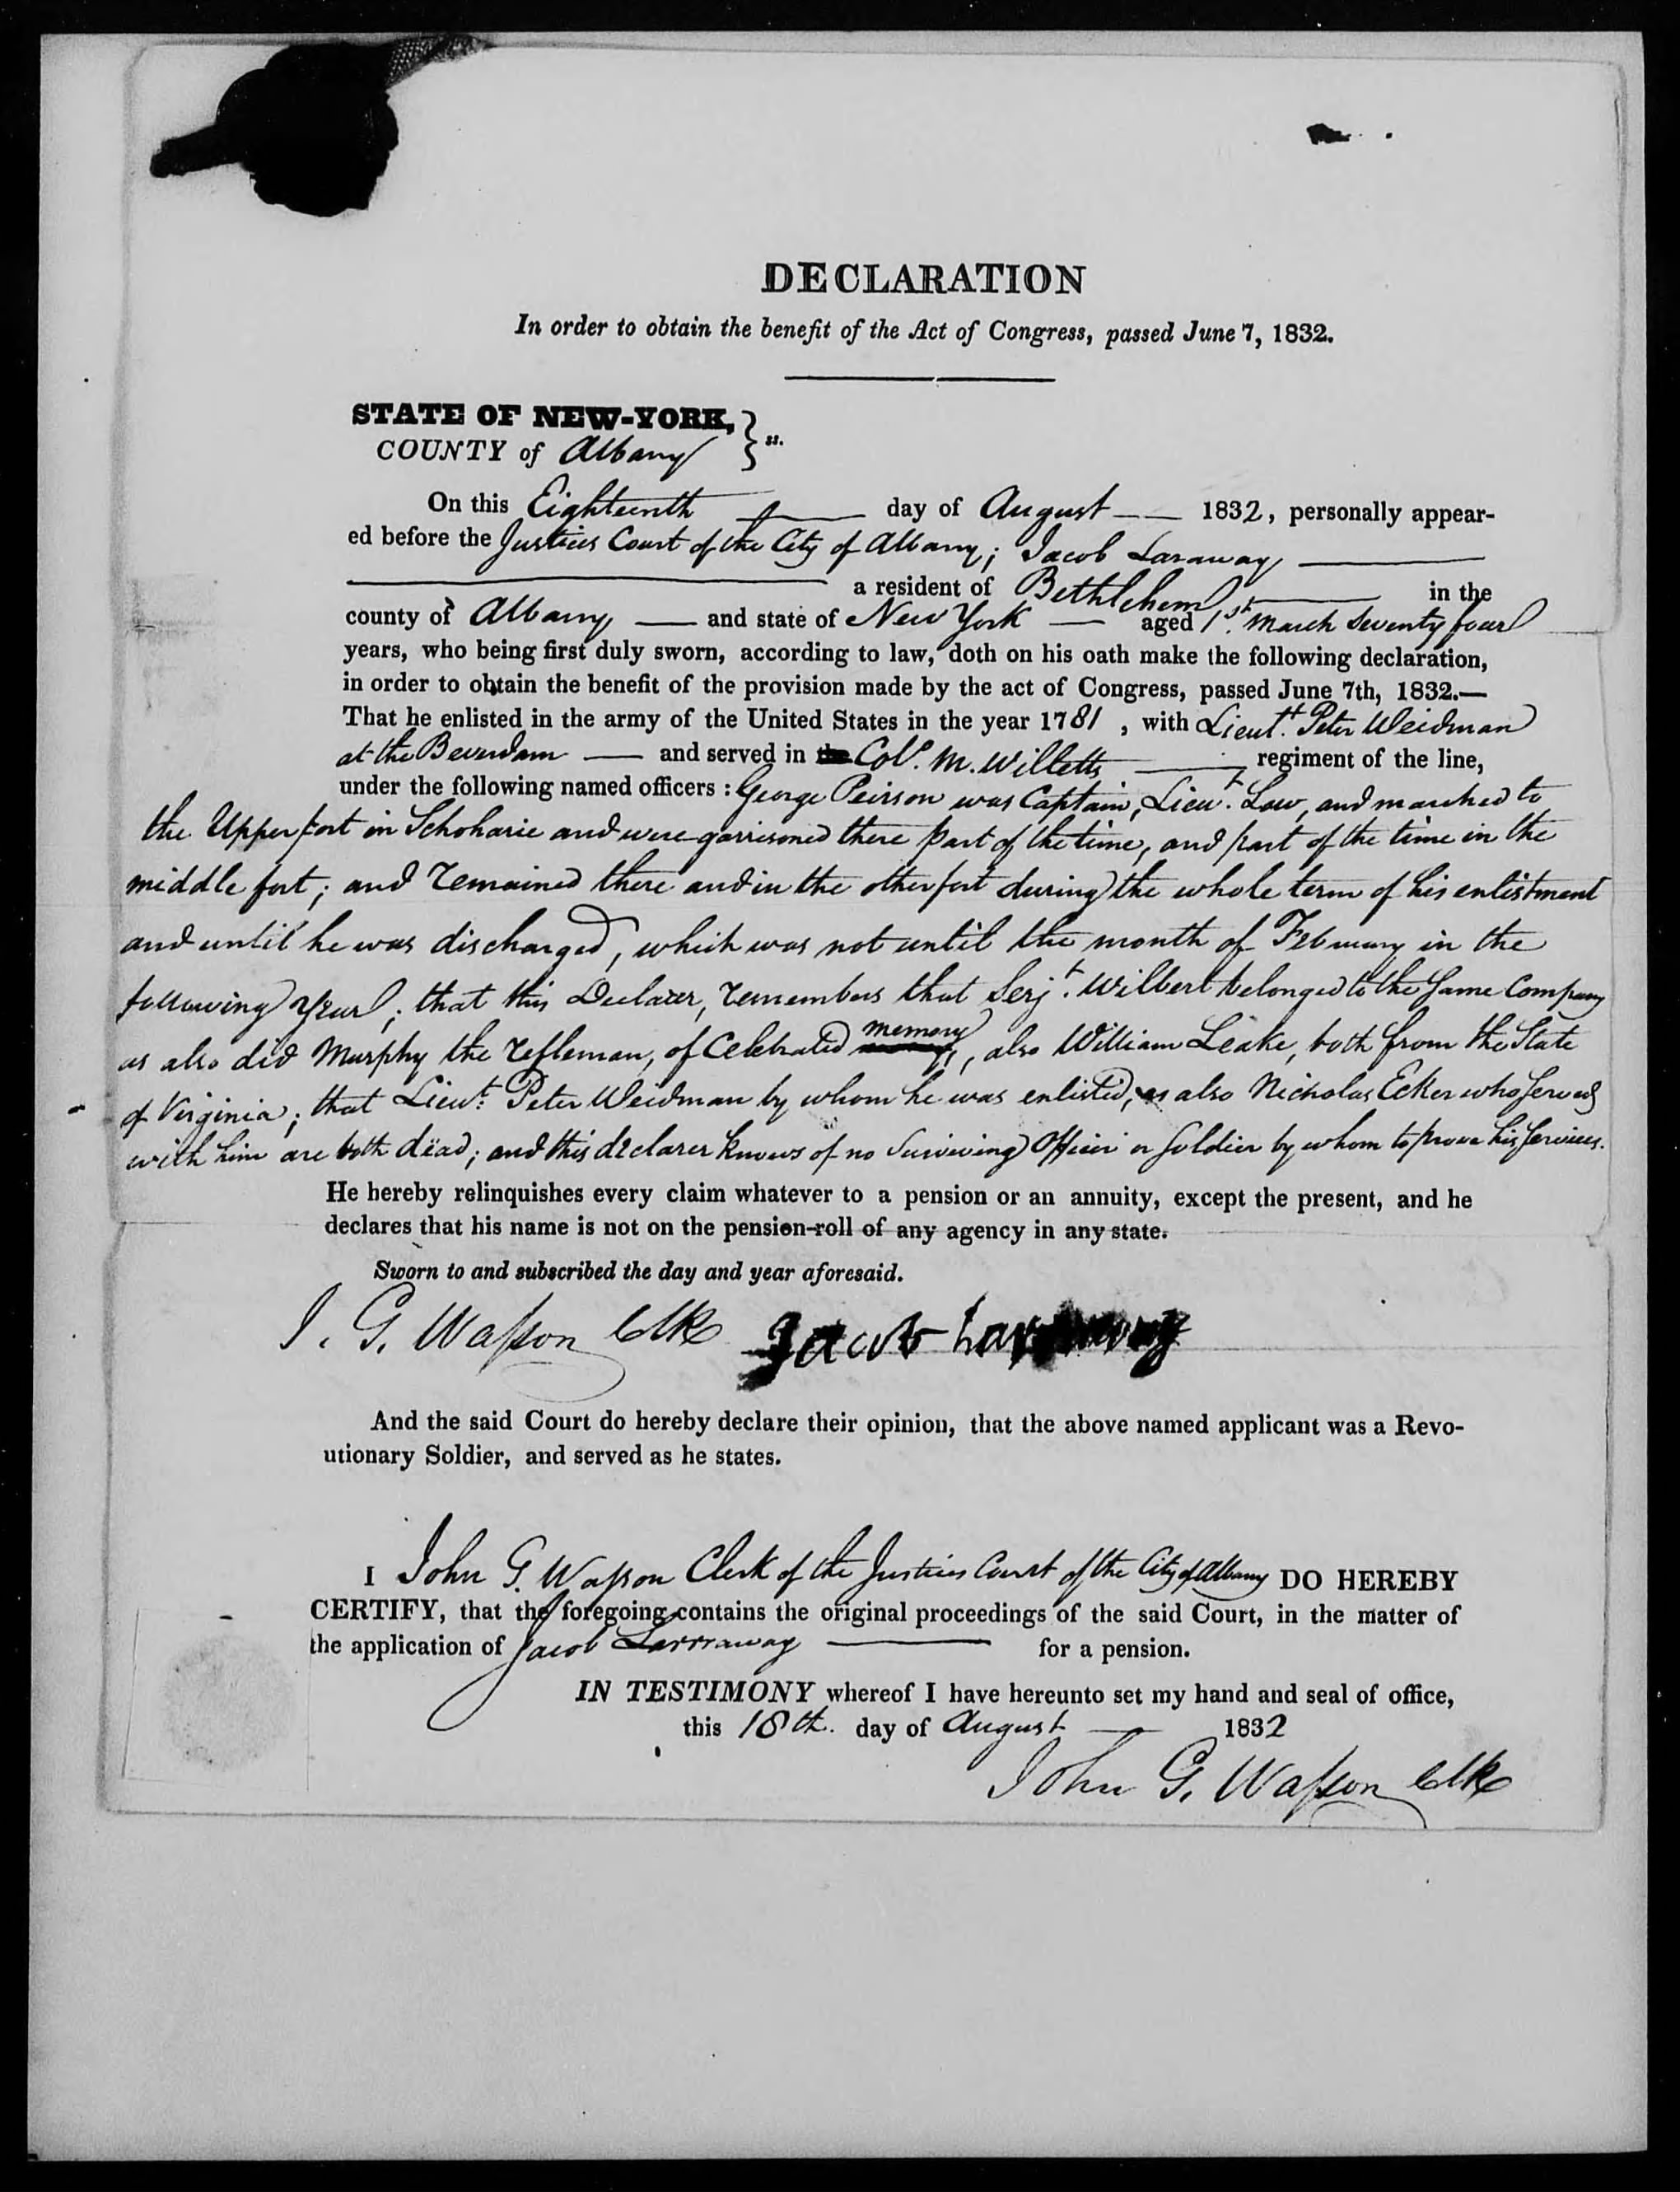 DECLARATION
In order to obtain the benefit of the Act of Congress, passed June 7, 1832.
STATE OF NEW-YORK, } ss.
COUNTY of Albany
On this Eighteenth day of August 1832, personally appear-
ed before the Justices Court of the City of Albany; Jacob Laraway
a resident of Bethlehem in the
county of Albany and state of New York aged 1st. March Seventy four
years, who being first duly sworn, according to law, doth on his oath make the following declaration,
in order to obtain the benefit of the provision made by the act of Congress, passed June 7th, 1832.—
That he enlisted in the army of the United States in the year 1781, with Lieut. Peter Weidman
at the Beverdam and served in the Col. M. Willetts regiment of the line,
under the following named officers: George Peirson was Captain, Lieut. Law, and marched to
the Upper fort in Schoharie and were garrisoned there part of the time, and part of the time in the
middle fort; and remained there and in the other fort during the whole term of his enlistment
and until he was discharged, which was not until the month of February in the
following year; that this Declarer, remembers that Serjt. Wilbert belonged to the same Company
as also did Murphy the refleman, of Celebrated memory, also William Leake, both from the State
of Virginia; that Lieut. Peter Weidman by whom he was enlisted, as also Nicholas Ecker who served
with him are both dead; and this declarer knows of no surviving Officer or Soldier by whom to prove his services.
He hereby relinquishes every claim whatever to a pension or an annuity, except the present, and he
declares that his name is not on the pension-roll of any agency in any state.
Sworn to and subscribed the day and year aforesaid.
J. G. Wasson Clk Jacob
And the said Court do hereby declare their opinion, that the above named applicant was a Revo-
utionary Soldier, and served as he states.
I John G. Wasson Clerk of the Justices Court of the City of Albany DO HEREBY
CERTIFY, that the foregoing contains the original proceedings of the said Court, in the matter of
the application of Jacob Larraway for a pension.
IN TESTIMONY whereof I have hereunto set my hand and seal of office,
this 18th. day of August 1832
John G. Wasson Clk